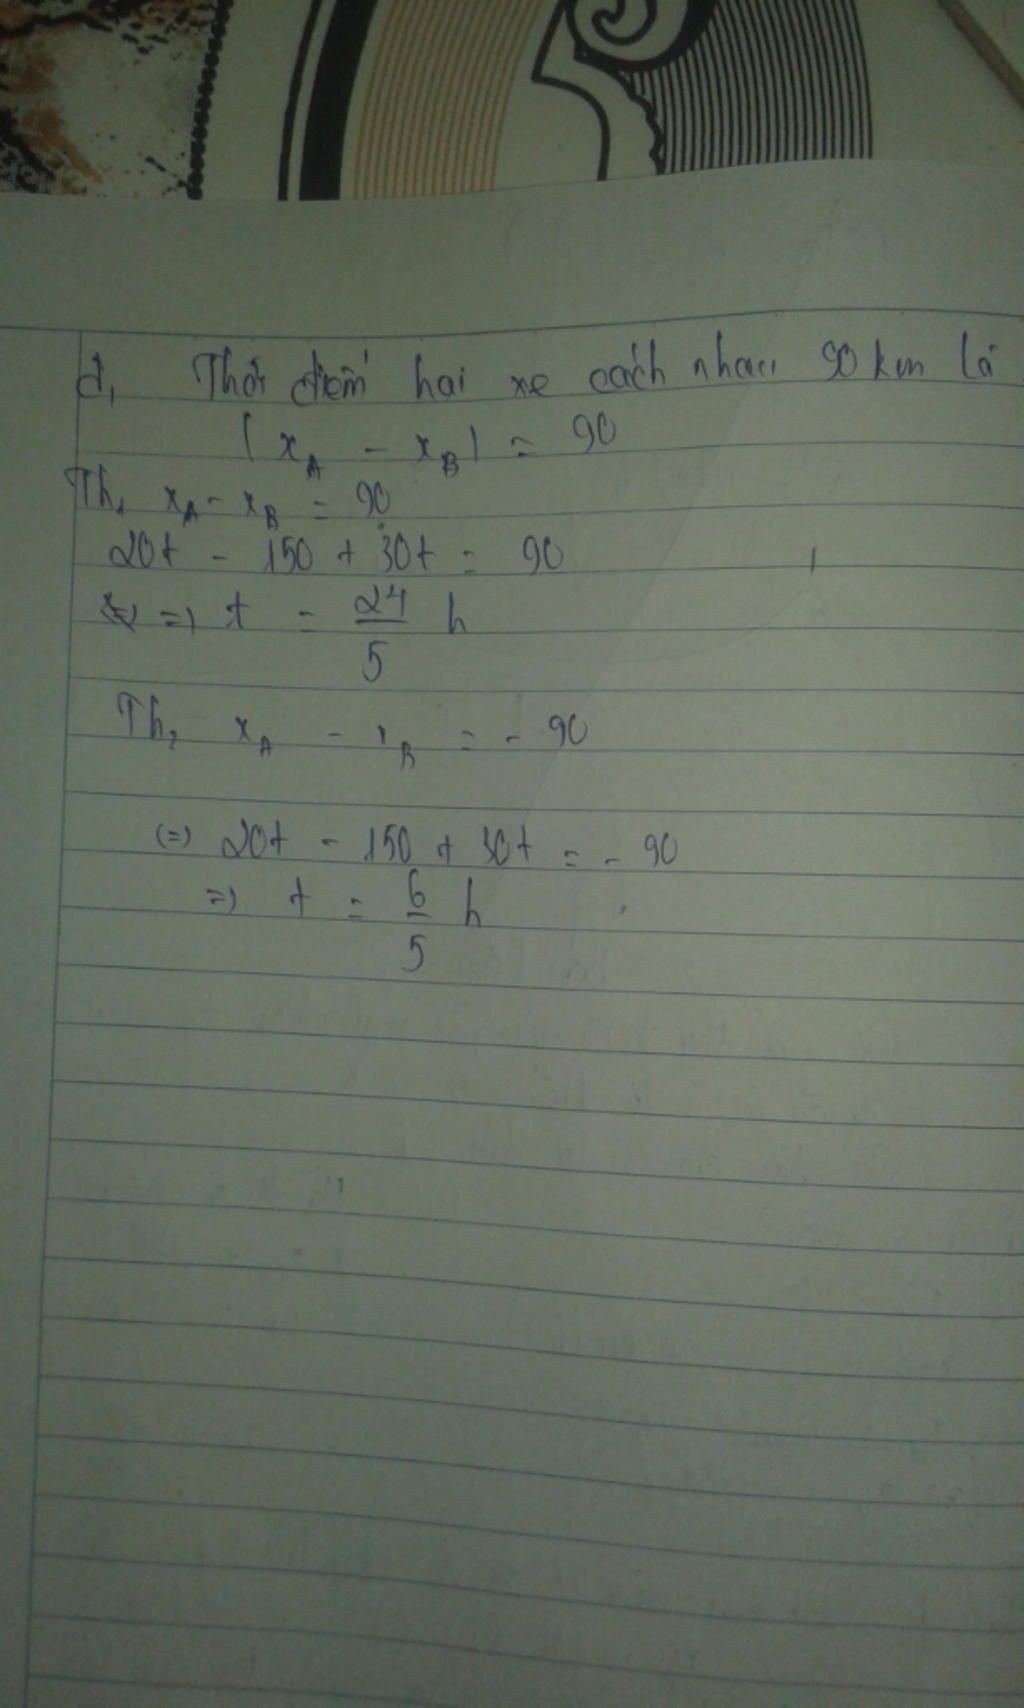 đ, Thời điểm hai xe cách nhau 90 km là
|x_A - x_B| = 90
Th₁ x_A - x_B = 90
20t - 150 + 30t = 90
=> t = 24/5 h
Th₂ x_A - x_B = - 90
(=) 20t - 150 + 30t = - 90
=) t = 6/5 h